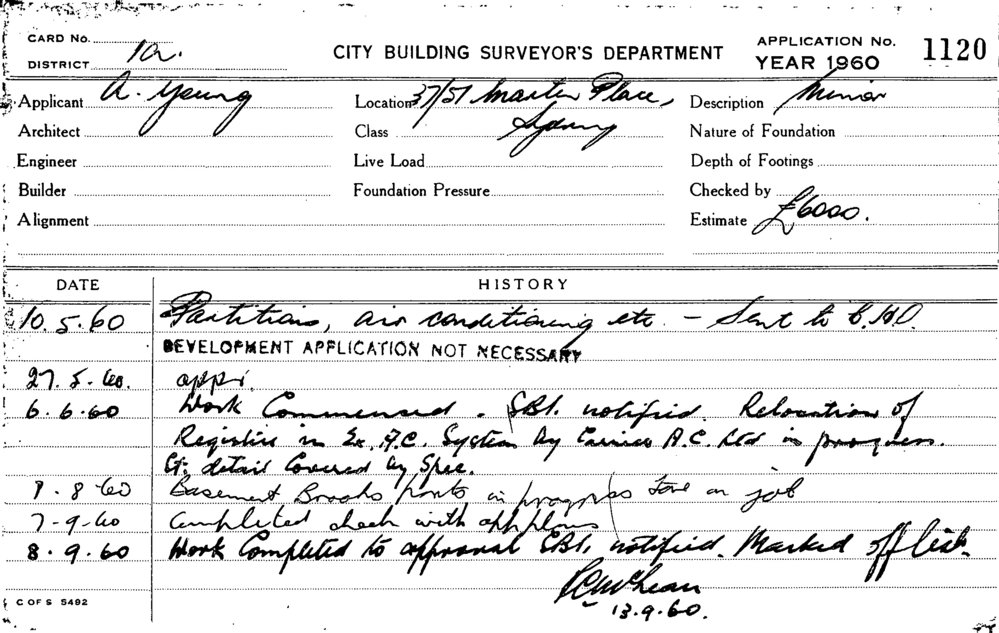 CARD No.
DISTRICT 1a.
CITY BUILDING SURVEYOR'S DEPARTMENT
APPLICATION No. 1120
YEAR 1960
Applicant A. Young
Location 37/51 Martin Place,
Sydney
Description Minor
Architect
Class
Nature of Foundation
Engineer
Live Load
Depth of Footings
Builder
Foundation Pressure
Checked by
Alignment
Estimate £6000.
DATE HISTORY
10.5.60 Partitions, air conditioning etc. - Sent to C.H.O.
DEVELOPMENT APPLICATION NOT NECESSARY
27.5.60. app'.
6.6.60 Work Commenced. SBI. notified. Relocation of
Registers in Ex. A.C. System by Carrier A.C. Ltd in progress.
detail Covered by Spec.
8.60 Basement in progress on job
7-9-60 Completed check with app plans
8.9.60 Work Completed to approval SBI. notified. Marked off list.
13.9.60.
C OF S 5492